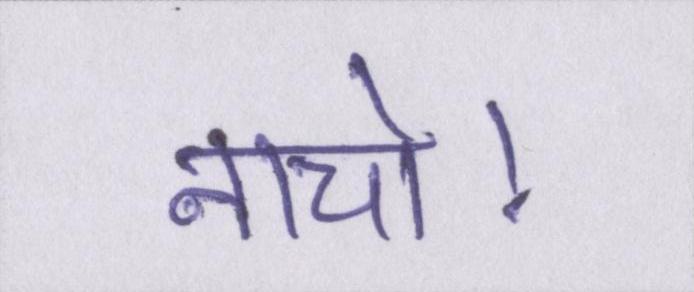 नाचो!